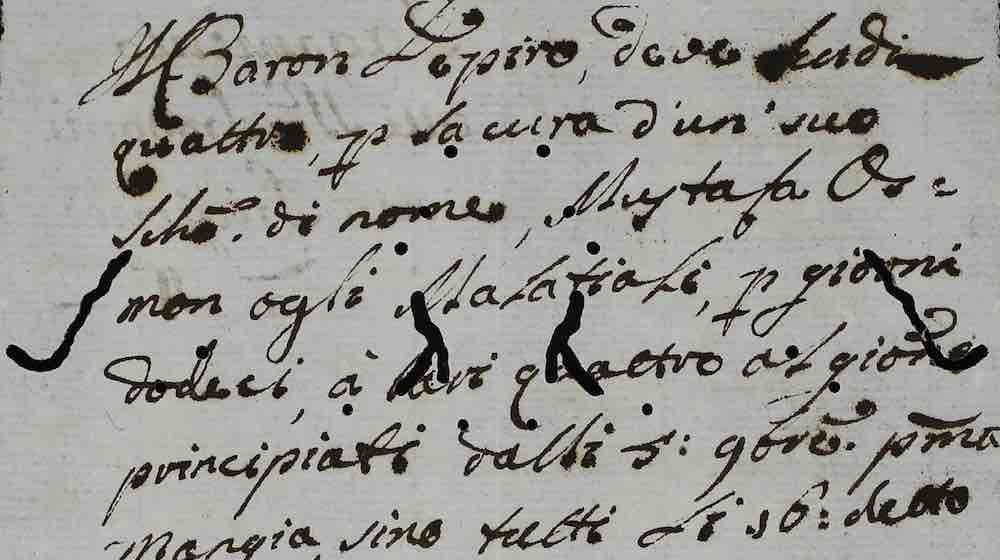 Il Baron Lepiro, deve scudi
quattro, p la cura d'un' suo
Schō. di nome, Mustafa Os=
mon ogli Malatiali, p giorni
dodeci, à tari quattro al giorno
principiati dalli 5: gbrē. pm̄o
Mangia, sino tutti li 16: detto